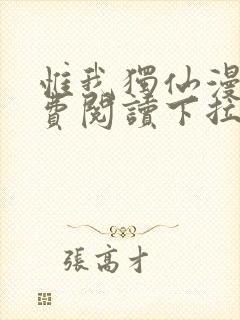 惟我獨仙漫
費閱讀下拉
張高才